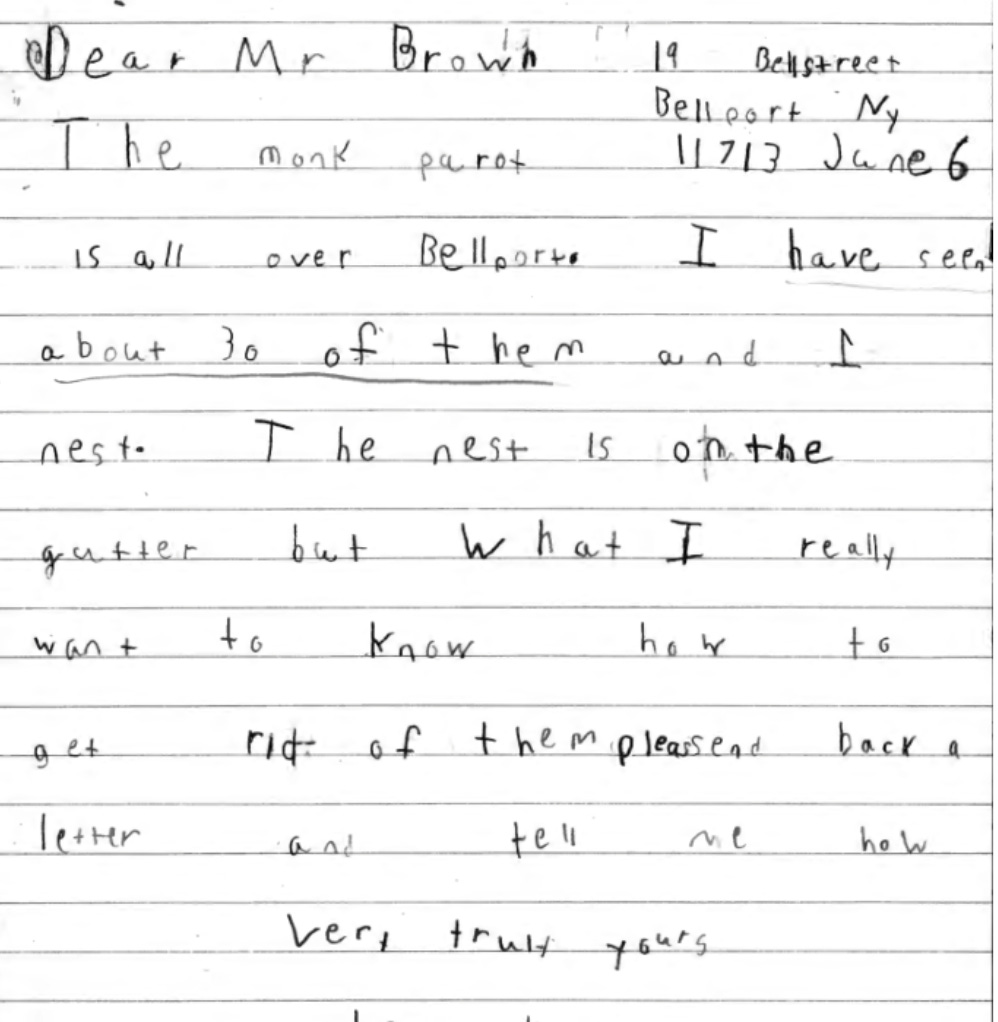 Dear Mr Brown 19 Bellstreet
Bellport Ny
The monk parot 11713 June 6
is all over Bellport. I have seen
about 30 of them and 1
nest. The nest is on the
gutter but what I really
want to know how to
get rid of them pleassend back a
letter and tell me how
Very truly yours